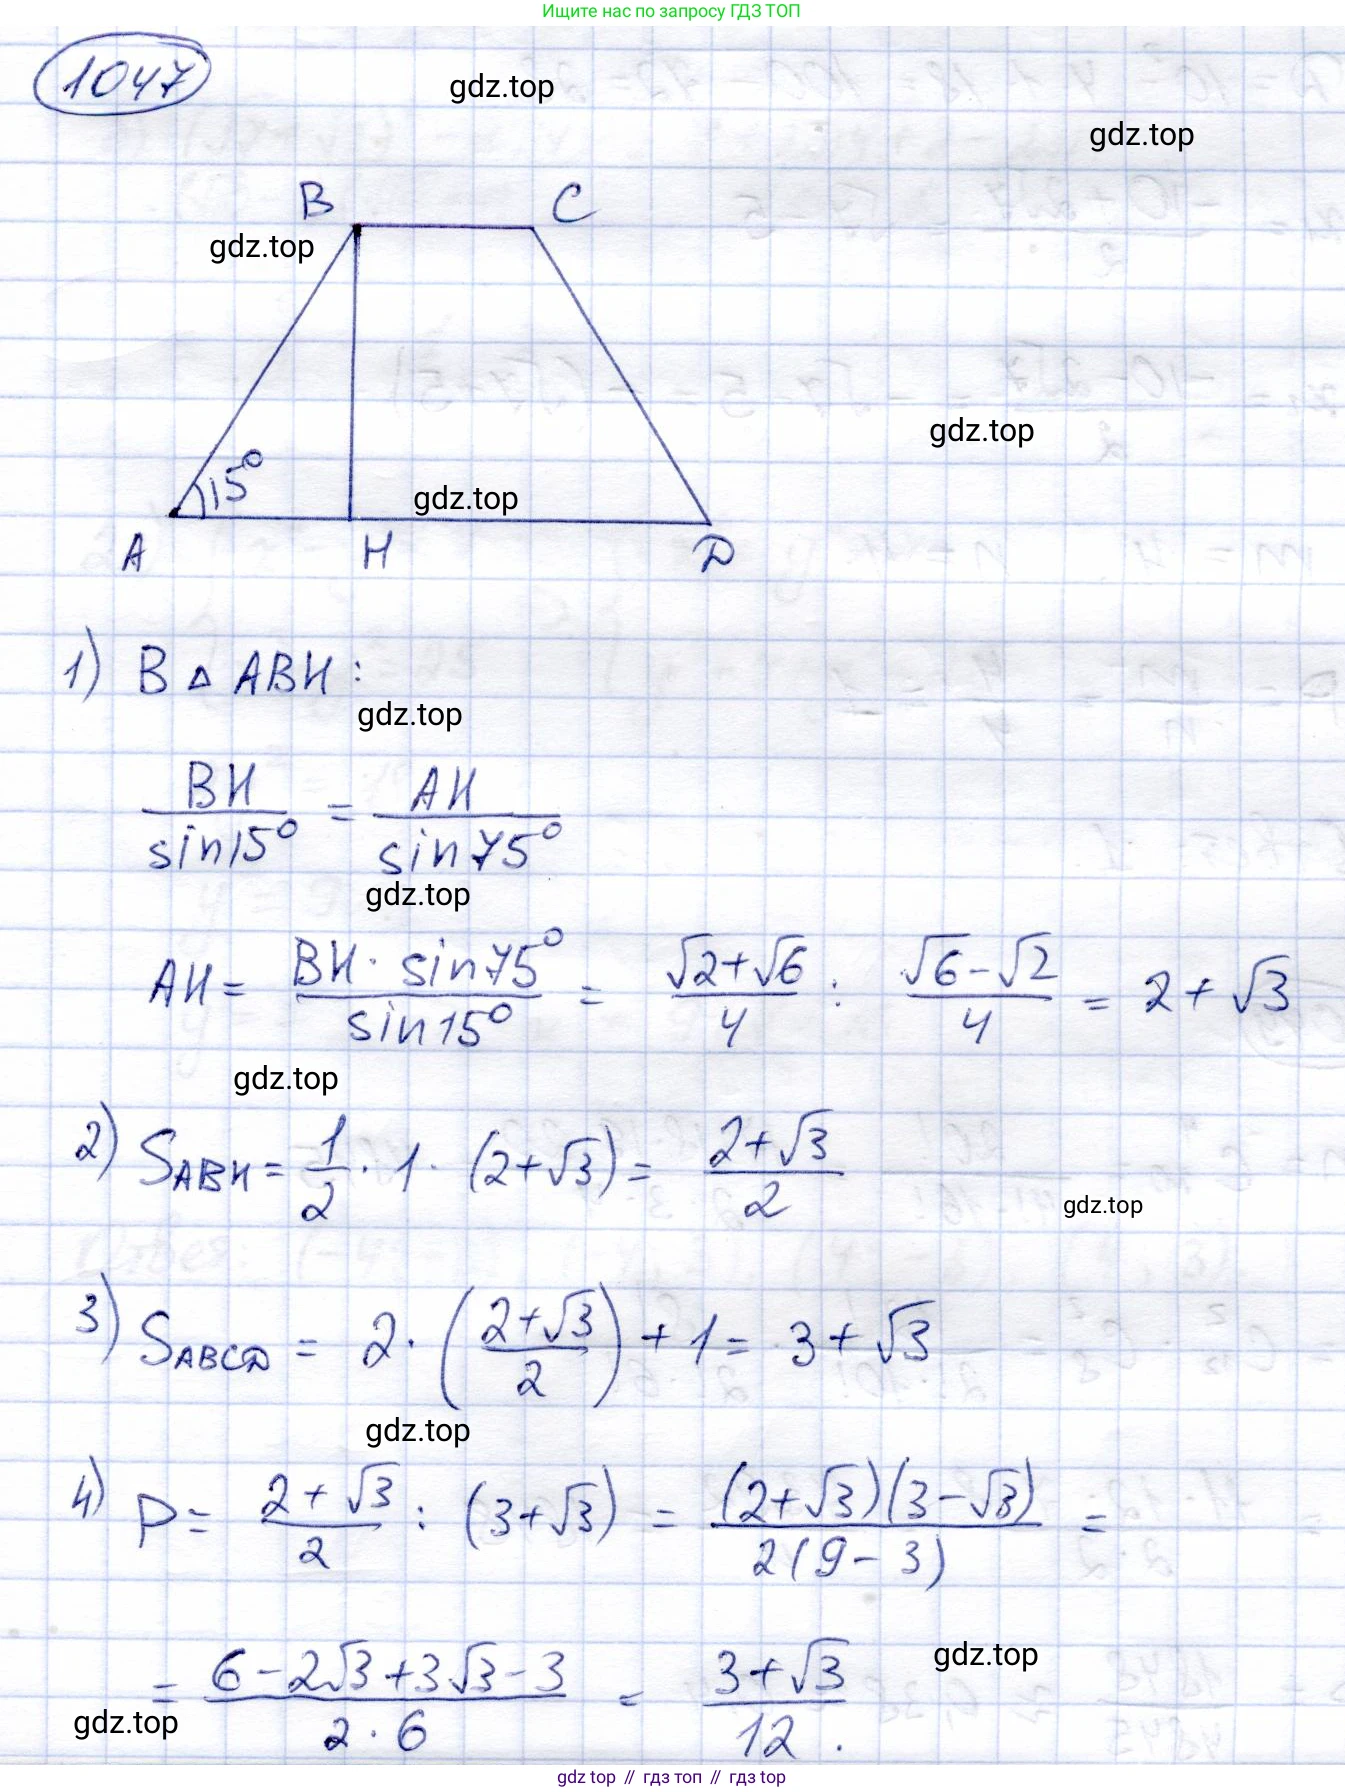 Ищите нас по запросу ГДЗ ТОП
1047
gdz.top
gdz.top
B C
gdz.top
gdz.top
15°
gdz.top
A H D
1) В △ ABH:
gdz.top
BH/sin15° = AH/sin75°
gdz.top
AH = BH · sin75°/sin15° = √2+√6/4 : √6-√2/4 = 2+√3
gdz.top
2) S ABH = 1/2 · 1 · (2+√3) = 2+√3/2
gdz.top
3) S ABCD = 2 · (2+√3/2) + 1 = 3+√3
gdz.top
4) P = 2+√3/2 : (3+√3) = (2+√3)(3-√3)/2(9-3) =
= 6-2√3+3√3-3/2·6 = 3+√3/12.
gdz.top
gdz.top
gdz top // гдз топ // gdz top